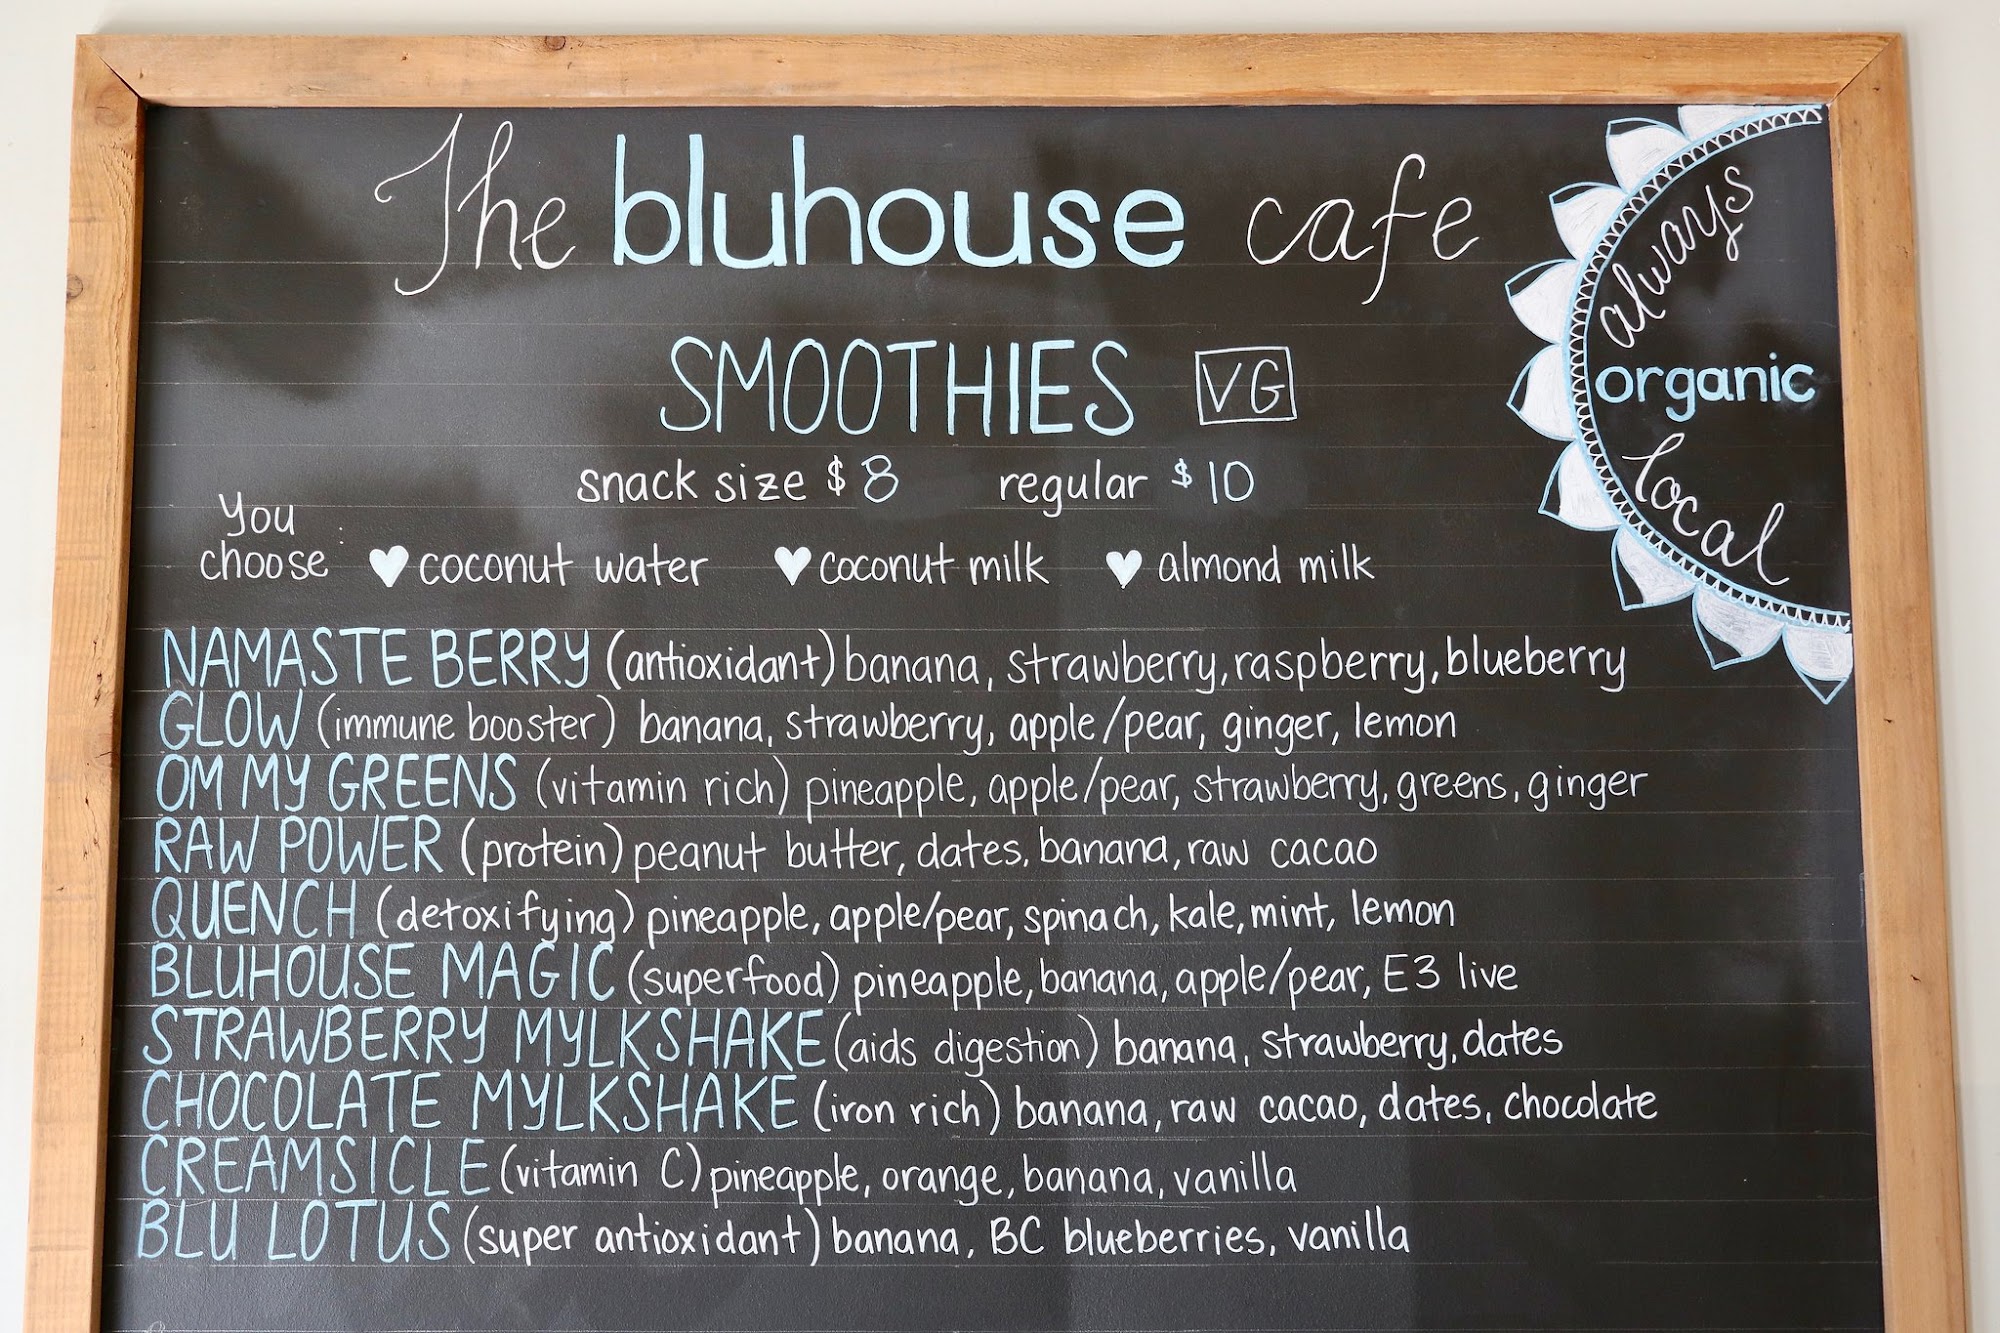 The bluhouse cafe
always
organic
local
SMOOTHIES VG
snack size $8 regular $10
You
choose :
♥ coconut water ♥ coconut milk ♥ almond milk
NAMASTE BERRY (antioxidant) banana, strawberry, raspberry, blueberry
GLOW (immune booster) banana, strawberry, apple/pear, ginger, lemon
OM MY GREENS (vitamin rich) pineapple, apple/pear, strawberry, greens, ginger
RAW POWER (protein) peanut butter, dates, banana, raw cacao
QUENCH (detoxifying) pineapple, apple/pear, spinach, kale, mint, lemon
BLUHOUSE MAGIC (superfood) pineapple, banana, apple/pear, E3 live
STRAWBERRY MYLKSHAKE (aids digestion) banana, strawberry, dates
CHOCOLATE MYLKSHAKE (iron rich) banana, raw cacao, dates, chocolate
CREAMSICLE (vitamin C) pineapple, orange, banana, vanilla
BLU LOTUS (super antioxidant) banana, BC blueberries, vanilla